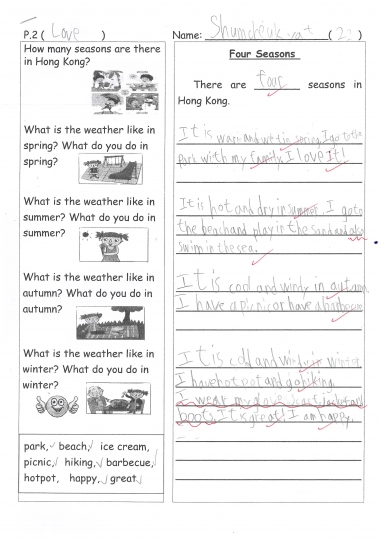 P.2 ( Love )
Name: Shum cheuk yat ( 2 )
How many seasons are there
in Hong Kong?
What is the weather like in
spring? What do you do in
spring?
What is the weather like in
summer? What do you do in
summer?
What is the weather like in
autumn? What do you do in
autumn?
What is the weather like in
winter? What do you do in
winter?
park, beach, ice cream,
picnic, hiking, barbecue,
hotpot, happy, great
Four Seasons
There are four seasons in
Hong Kong.
It is warm and wet in spring. I go to the
park with my family. I love it!
It is hot and dry in summer. I go to
the beach and play in the sand and also
swim in the sea.
It is cool and windy in autumn
I have a picnic or have a barbecue
It is cold and windy in winter
I have hotpot and go hiking.
I wear my glove scarf, jacket and
boot. It is great! I am happy.